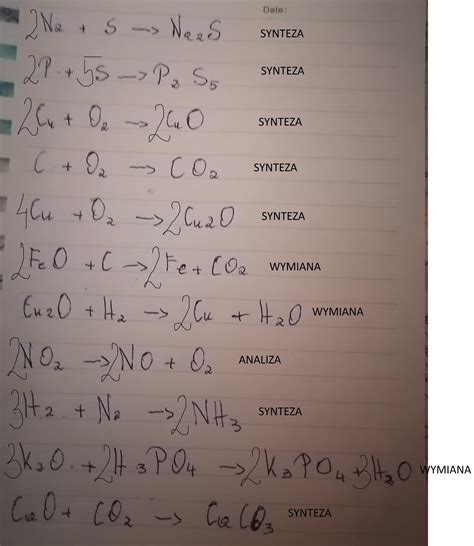 Date:
2Na + S → Na2S SYNTEZA
2P + 5S → P2S5 SYNTEZA
2Cu + O2 → 2CuO SYNTEZA
C + O2 → CO2 SYNTEZA
4Cu + O2 → 2Cu2O SYNTEZA
2FeO + C → 2Fe + CO2 WYMIANA
Cu2O + H2 → 2Cu + H2O WYMIANA
2NO2 → 2NO + O2 ANALIZA
3H2 + N2 → 2NH3 SYNTEZA
3K2O + 2H3PO4 → 2K3PO4 + 3H2O WYMIANA
CaO + CO2 → CaCO3 SYNTEZA